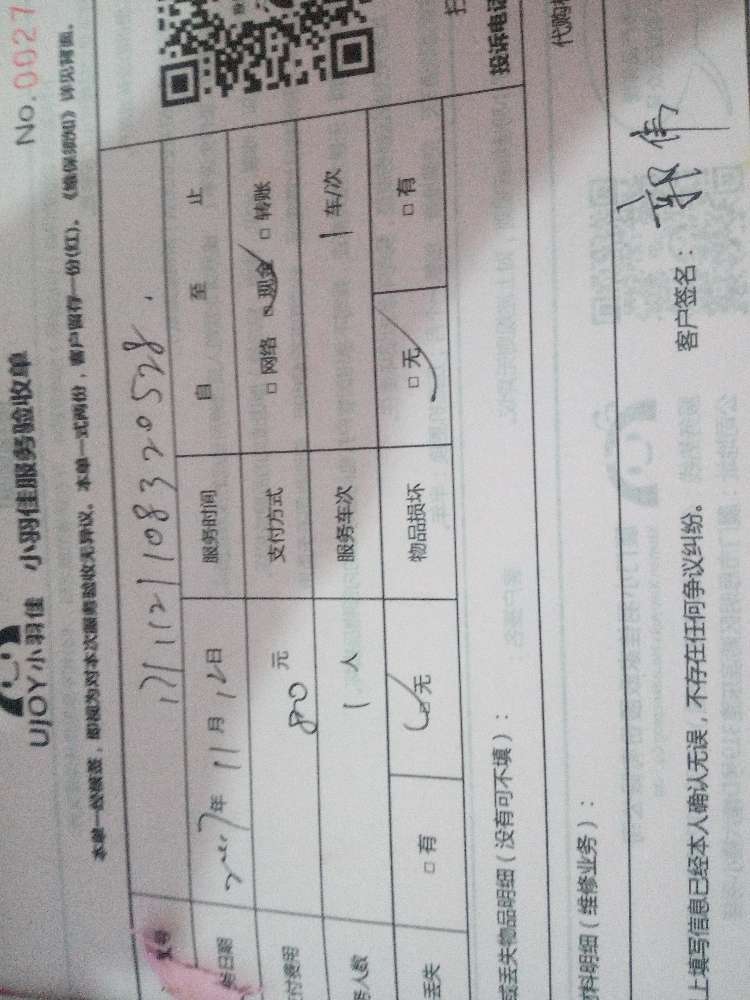 UJOY小羽佳 小羽佳服务验收单
No.0027
本单一经核签，即视为对本次服务验收无异议。本单一式两份，客户留存一份(红)。《维保须知》详见背面。
171121108320528
务日期 2017年11月12日 服务时间 自 至 止
付费用 80元 支付方式 □网络 □现金 □转账
务人数 1人 服务车次 1车/次
丢失 □有 □无 物品损坏 □无 □有
或丢失物品明细（没有可不填）：
投诉电话
料明细（维修业务）：
代购
上填写信息已经本人确认无误，不存在任何争议纠纷。 客户签名：郭伟